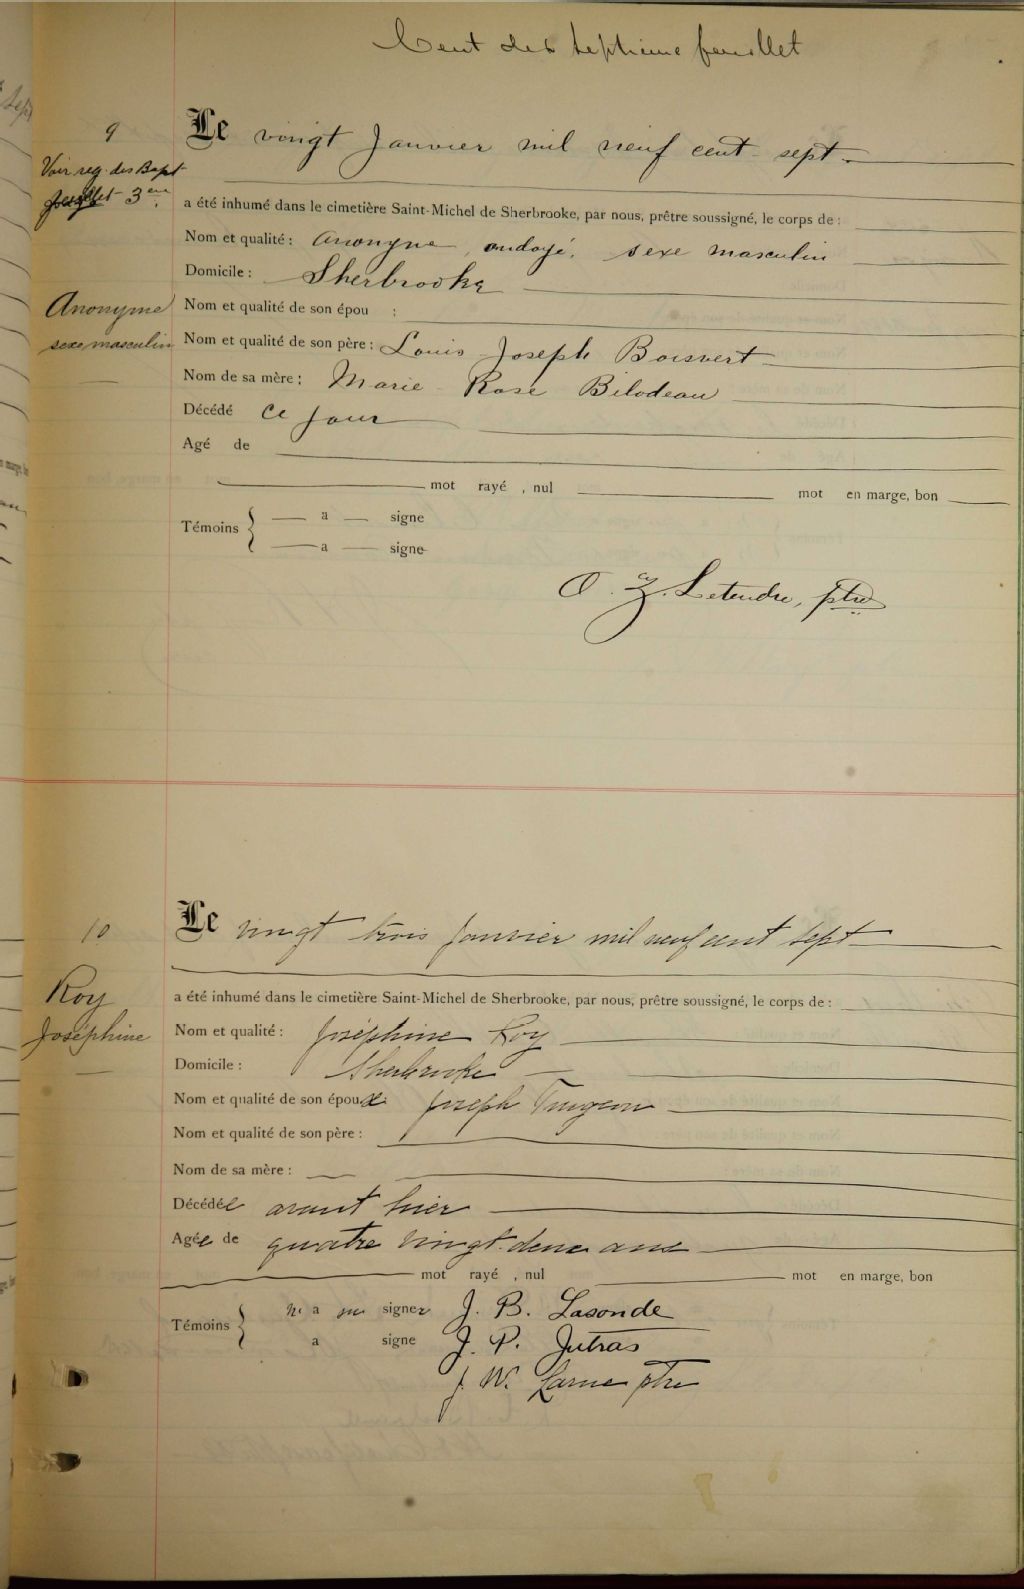 Cent dix septième feuillet
9
Le vingt Janvier mil neuf cent sept.
Voir reg. des Bapt
feuillet 3em.
a été inhumé dans le cimetière Saint-Michel de Sherbrooke, par nous, prêtre soussigné, le corps de :
Nom et qualité : Anonyme, ondoyé, sexe masculin
Domicile : Sherbrooke
Anonyme
sexe masculin
Nom et qualité de son épou :
Nom et qualité de son père : Louis Joseph Boisvert
Nom de sa mère : Marie-Rose Bilodeau
Décédé ce jour
Agé de
mot rayé , nul mot en marge, bon
Témoins { — a — signe
— a — signe
O. Z. Letendre, ptre
10
Le vingt trois Janvier mil neuf cent sept
Roy
Joséphine
a été inhumé dans le cimetière Saint-Michel de Sherbrooke, par nous, prêtre soussigné, le corps de :
Nom et qualité : Joséphine Roy
Domicile : Sherbrooke
Nom et qualité de son époux : Joseph Turgeon
Nom et qualité de son père :
Nom de sa mère :
Décédée avant hier
Agée de quatre vingt-deux ans
mot rayé , nul mot en marge, bon
Témoins { a signer J. B. Lasonde
a signe J. P. Jutras
J. W. Larue ptre